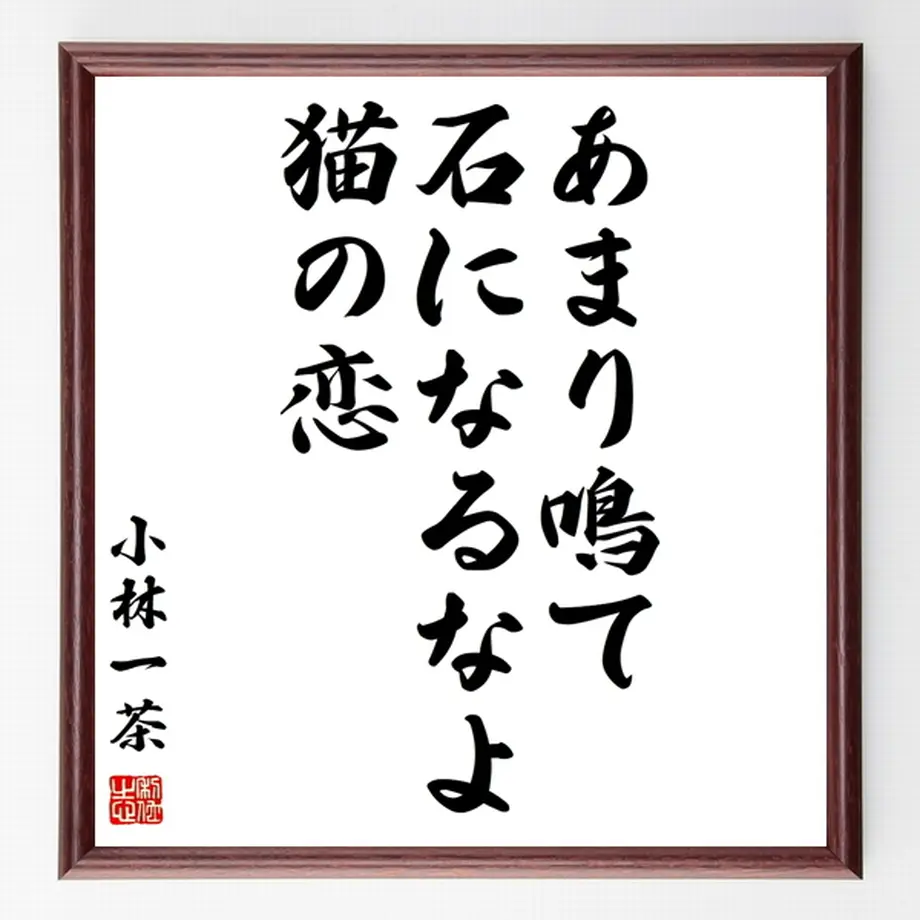 あまり鳴て
石になるなよ
猫の恋
小林一茶